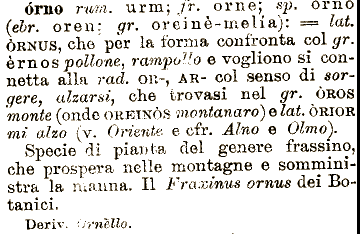 órno rum. urm; fr. orne; sp. orno
(ebr. oren; gr. oreinè-melía): = lat.
ÒRNUS, che per la forma confronta col gr.
èrnos pollone, rampollo e vogliono si con-
netta alla rad. OR-, AR- col senso di sor-
gere, alzarsi, che trovasi nel gr. ÒROS
monte (onde OREINÒS montanaro) e lat. ÒRIOR
mi alzo (v. Oriente e cfr. Alno e Olmo).
Specie di pianta del genere frassino,
che prospera nelle montagne e sommini-
stra la manna. Il Fraxinus ornus dei Bo-
tanici.
Deriv. Ornèllo.